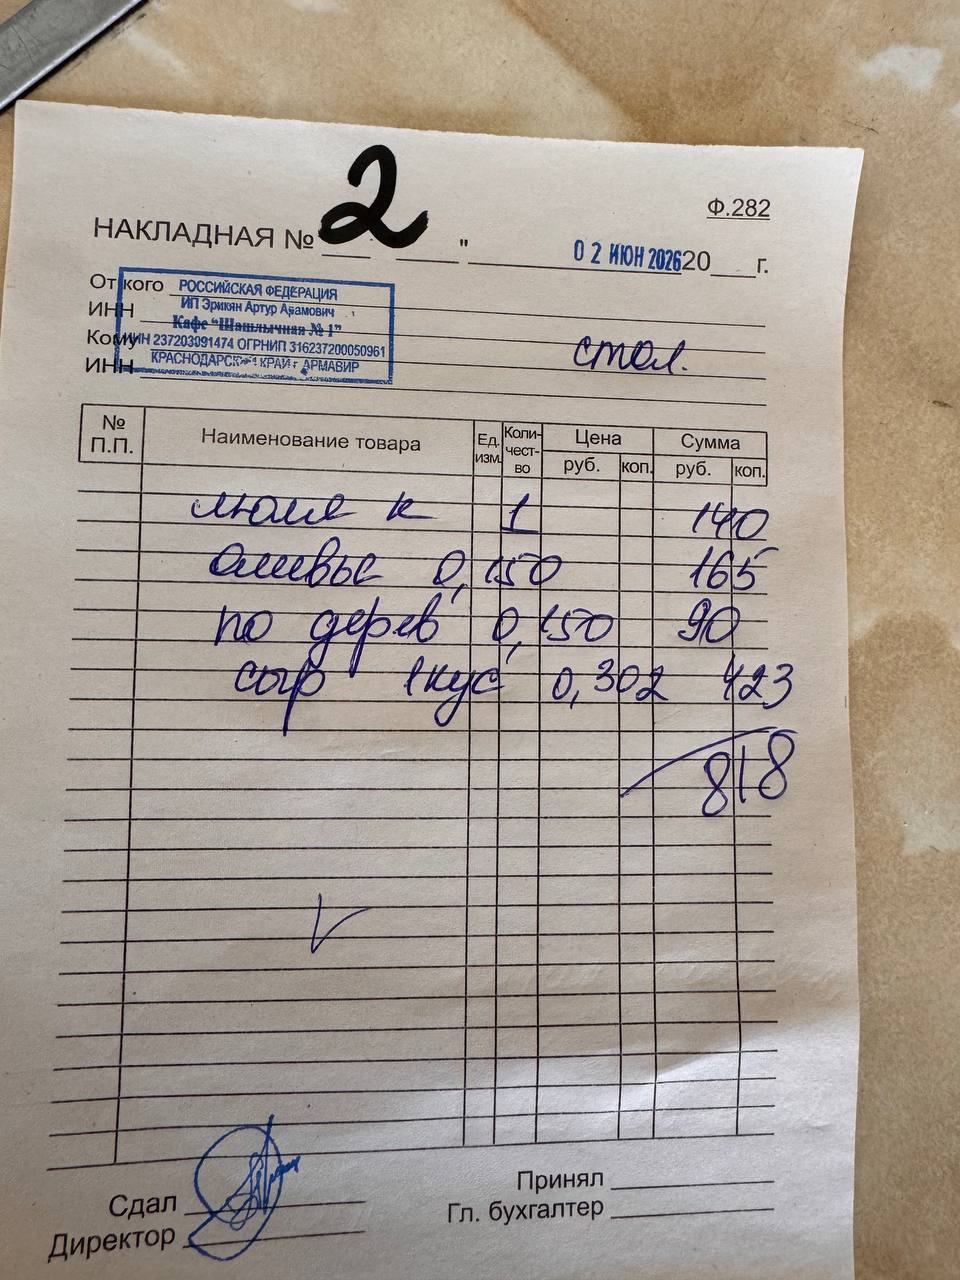 Ф.282
НАКЛАДНАЯ № 2 " 02 ИЮН 2026 20 г.
От кого
ИНН
Кому стол.
ИНН
РОССИЙСКАЯ ФЕДЕРАЦИЯ
ИП Эрикян Артур Арамович
Кафе "Шашлычная № 1"
ИНН 237203091474 ОГРНИП 316237200050961
КРАСНОДАРСКИЙ КРАЙ г. АРМАВИР
№ П.П. Наименование товара Ед. изм. Коли-чест-во Цена руб. коп. Сумма руб. коп.
люля к 1 140
оливье 0,150 165
по дерев 0,150 90
сыр 1кус 0,302 423
818
Сдал
Директор
Принял
Гл. бухгалтер